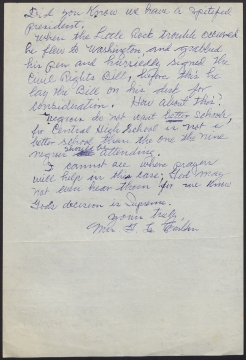 Did you know we have a spiteful
president.
When the Little Rock trouble occurred
he flew to Washington and grabbed
his pen and hurriedly signed the
Civil Rights Bill, before this he
lay the Bill on his desk for
consideration. How about this?
Negroes do not want better schools,
for Central High School is not a
better school than the one the nine
negroes should be attending.
I cannot see where prayers
will help in this case; God may
not even hear them for we know
God's decision is Supreme.
Yours truly,
Mrs